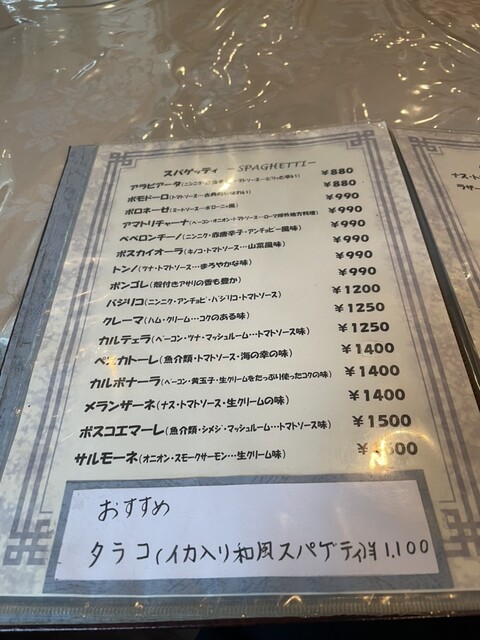 スパゲッティ －SPAGHETTI－
アラビアータ(ニンニク・ ・トマトソース…ピリッと辛い) ￥880
ポモドーロ(トマトソース… 味わい) ￥880
ボロネーゼ(ミートソース…ボローニャ風) ￥990
アマトリチャーナ(ベーコン・オニオン・トマトソース…ローマ郊外地方料理) ￥990
ペペロンチーノ(ニンニク・赤唐辛子・アンチョビー風味) ￥990
ボスカイオーラ(キノコ・トマトソース…山菜風味) ￥990
トンノ(ツナ・トマトソース…まろやかな味) ￥990
ボンゴレ(殻付きアサリの香も豊か) ￥990
バジリコ(ニンニク・アンチョビ・バジリコ・トマトソース) ￥1200
クレーマ(ハム・クリーム…コクのある味) ￥1250
カルテェラ(ベーコン・ツナ・マッシュルーム…トマトソース味) ￥1250
ペスカトーレ(魚介類・トマトソース・海の幸の味) ￥1400
カルボナーラ(ベーコン・黄玉子・生クリームをたっぷり使ったコクの味) ￥1400
メランザーネ(ナス・トマトソース・生クリームの味) ￥1400
ボスコエマーレ(魚介類・シメジ・マッシュルーム…トマトソース味) ￥1500
サルモーネ(オニオン・スモークサーモン…生クリーム味)
おすすめ
タラコ(イカ入り和風スパゲティ)￥1,100
ナス・ト